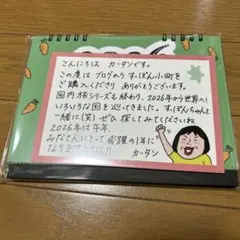 こんにちは カータンです。
この度は ブログから すっぽん小町を
ご購入くださり ありがとうございます。
国内旅シリーズも終わり、2026年から世界へ!
いろいろな国を巡ってきました。すっぽんちゃんと
一緒に(笑) ぜひ 探してみてくださいね
2026年は午年、
みなさんにとって 飛躍の1年に
なりますように!!
カータン